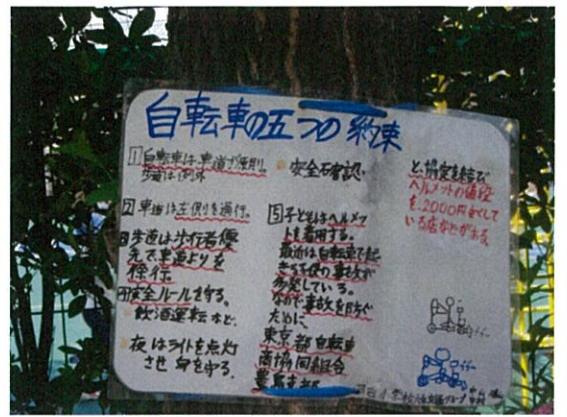 自転車の五つの約束
1 自転車は、車道が原則。
歩道は例外
2 車道は左側を通行。
3 歩道は歩行者優
先で車道よりを
徐行。
4 安全ルールを守る。
飲酒運転など。
夜はライトを点灯
させ身を守る。
安全確認
5 子どもはヘルメッ
トを着用する。
最近は自転車で起
きる子供の事故が
多発している。
なので事故を防ぐ
ために、
東京都自転車
商協同組合
豊島支部
と、協定を結び
ヘルメットの値段
を、2000円
いる店などがある。